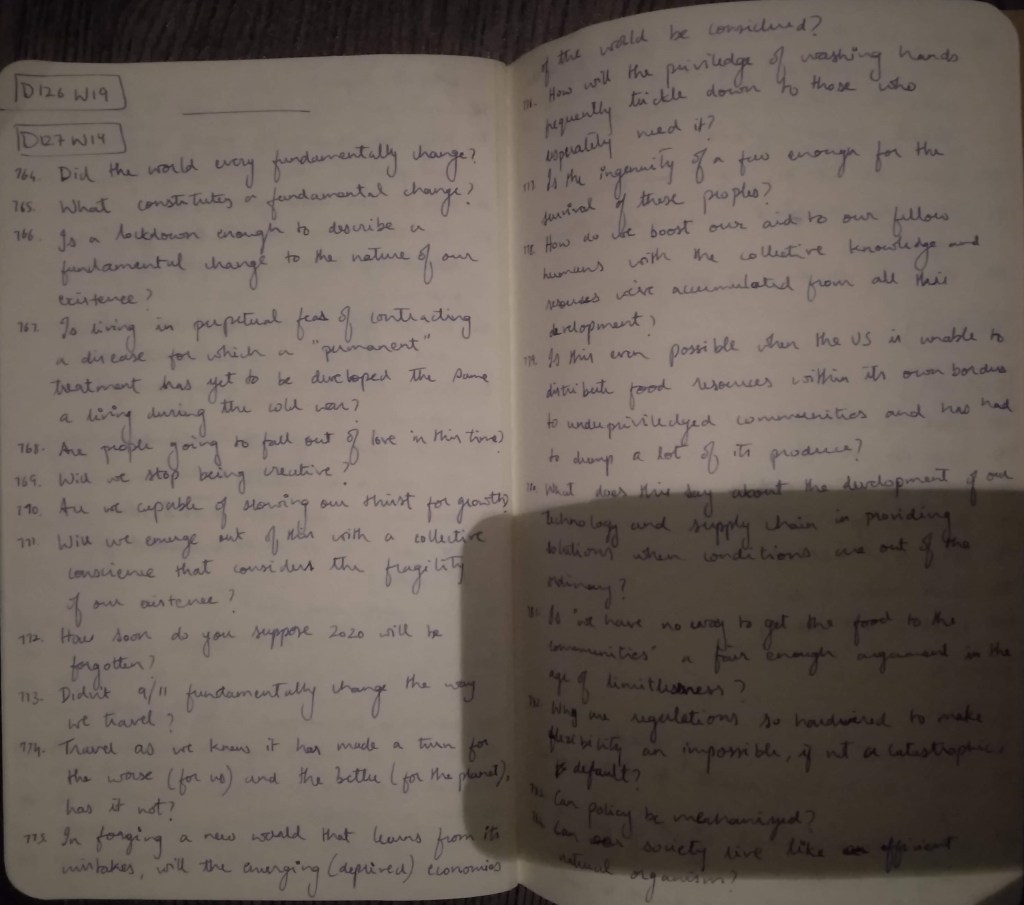 D126 W19
D127 W19
764. Did the world every fundamentally change?
765. What constitutes a fundamental change?
766. Is a lockdown enough to describe a
fundamental change to the nature of our
existence?
767. Is living in perpetual fear of contracting
a disease for which a "permanent"
treatment has yet to be developed the same
a living during the cold war?
768. Are people going to fall out of love in this time?
769. Will we stop being creative?
770. Are we capable of slowing our thirst for growth?
771. Will we emerge out of this with a collective
conscience that considers the fragility
of our existence?
772. How soon do you suppose 2020 will be
forgotten?
773. Didn't 9/11 fundamentally change the way
we travel?
774. Travel as we knew it has made a turn for
the worse (for us) and the better (for the planet),
has it not?
775. In forging a new world that learns from its
mistakes, will the emerging (deprived) economies
of the world be considered?
776. How will the priviledge of washing hands
frequently trickle down to those who
desperately need it?
777. Is the ingenuity of a few enough for the
survival of these peoples?
778. How do we boost our aid to our fellow
humans with the collective knowledge and
resources we've accumulated from all this
development?
779. Is this even possible when the US is unable to
distribute food resources within its own borders
to underpriviledged communities and has had
to dump a lot of its produce?
780. What does this say about the development of our
technology and supply chain in providing
solutions when conditions are out of the
ordinary?
781. Is "we have no way to get the food to the
communities" a fair enough argument in the
age of limitlessness?
782. Why are regulations so hardwired to make
flexibility an impossible, if not a catastrophic,
default?
783. Can policy be mechanized?
784. Can society live like efficient
natural organisms?